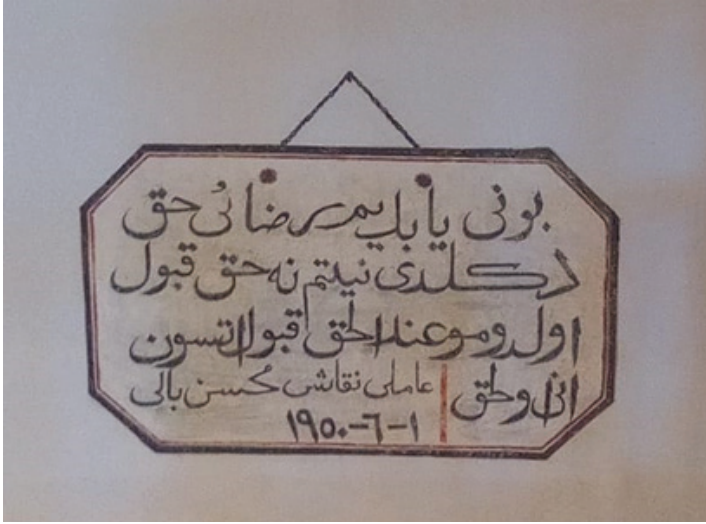 بونی یابدیم رضائی حق
دکلدی نیتم نه حق قبول
اولدومو عندالحق قبول اتسون
انی وحق
عاملی نقاش محسن بالی
١-٦-١٩٥٠